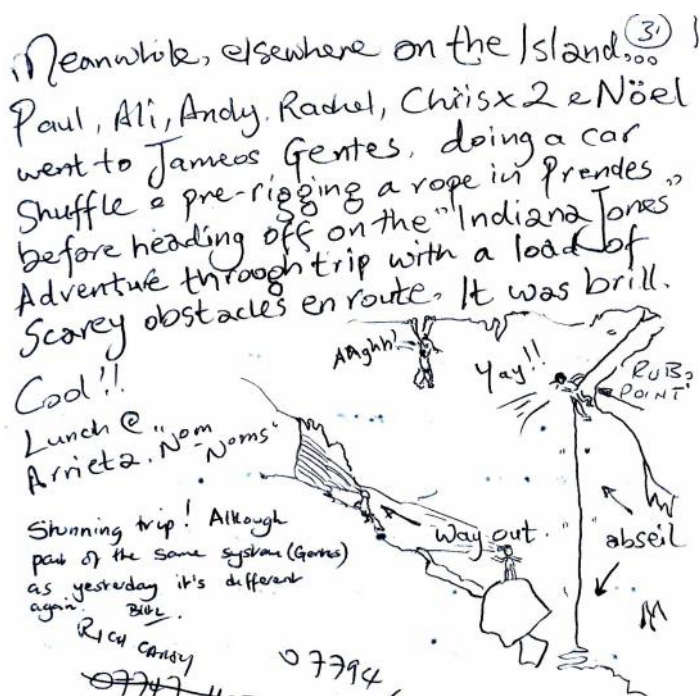 Meanwhile, elsewhere on the Island...
31
Paul, Ali, Andy, Rachel, Chris x 2 & Nöel
went to Jameos Gentes, doing a car
Shuffle & pre-rigging a rope in Prendes
before heading off on the "Indiana Jones"
Adventure through trip with a load of
Scarey obstacles en route. It was brill.
Cool!!
Lunch @
Arrieta. "Nom
-Noms"
AAghh!
Yay!!
RUB
POINT
Way out.
abseil
Stunning trip! Although
part of the same system (Gentes)
as yesterday it's different
again.
RICH
07794
07747